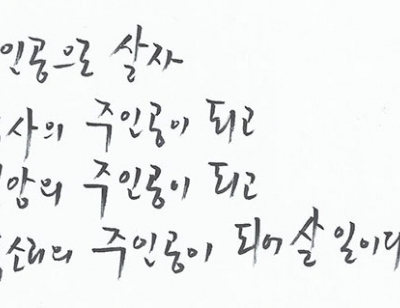 인공으로 살자
사의 주인공이 되고
암의 주인공이 되고
소리의 주인공이 되어 살 일이다